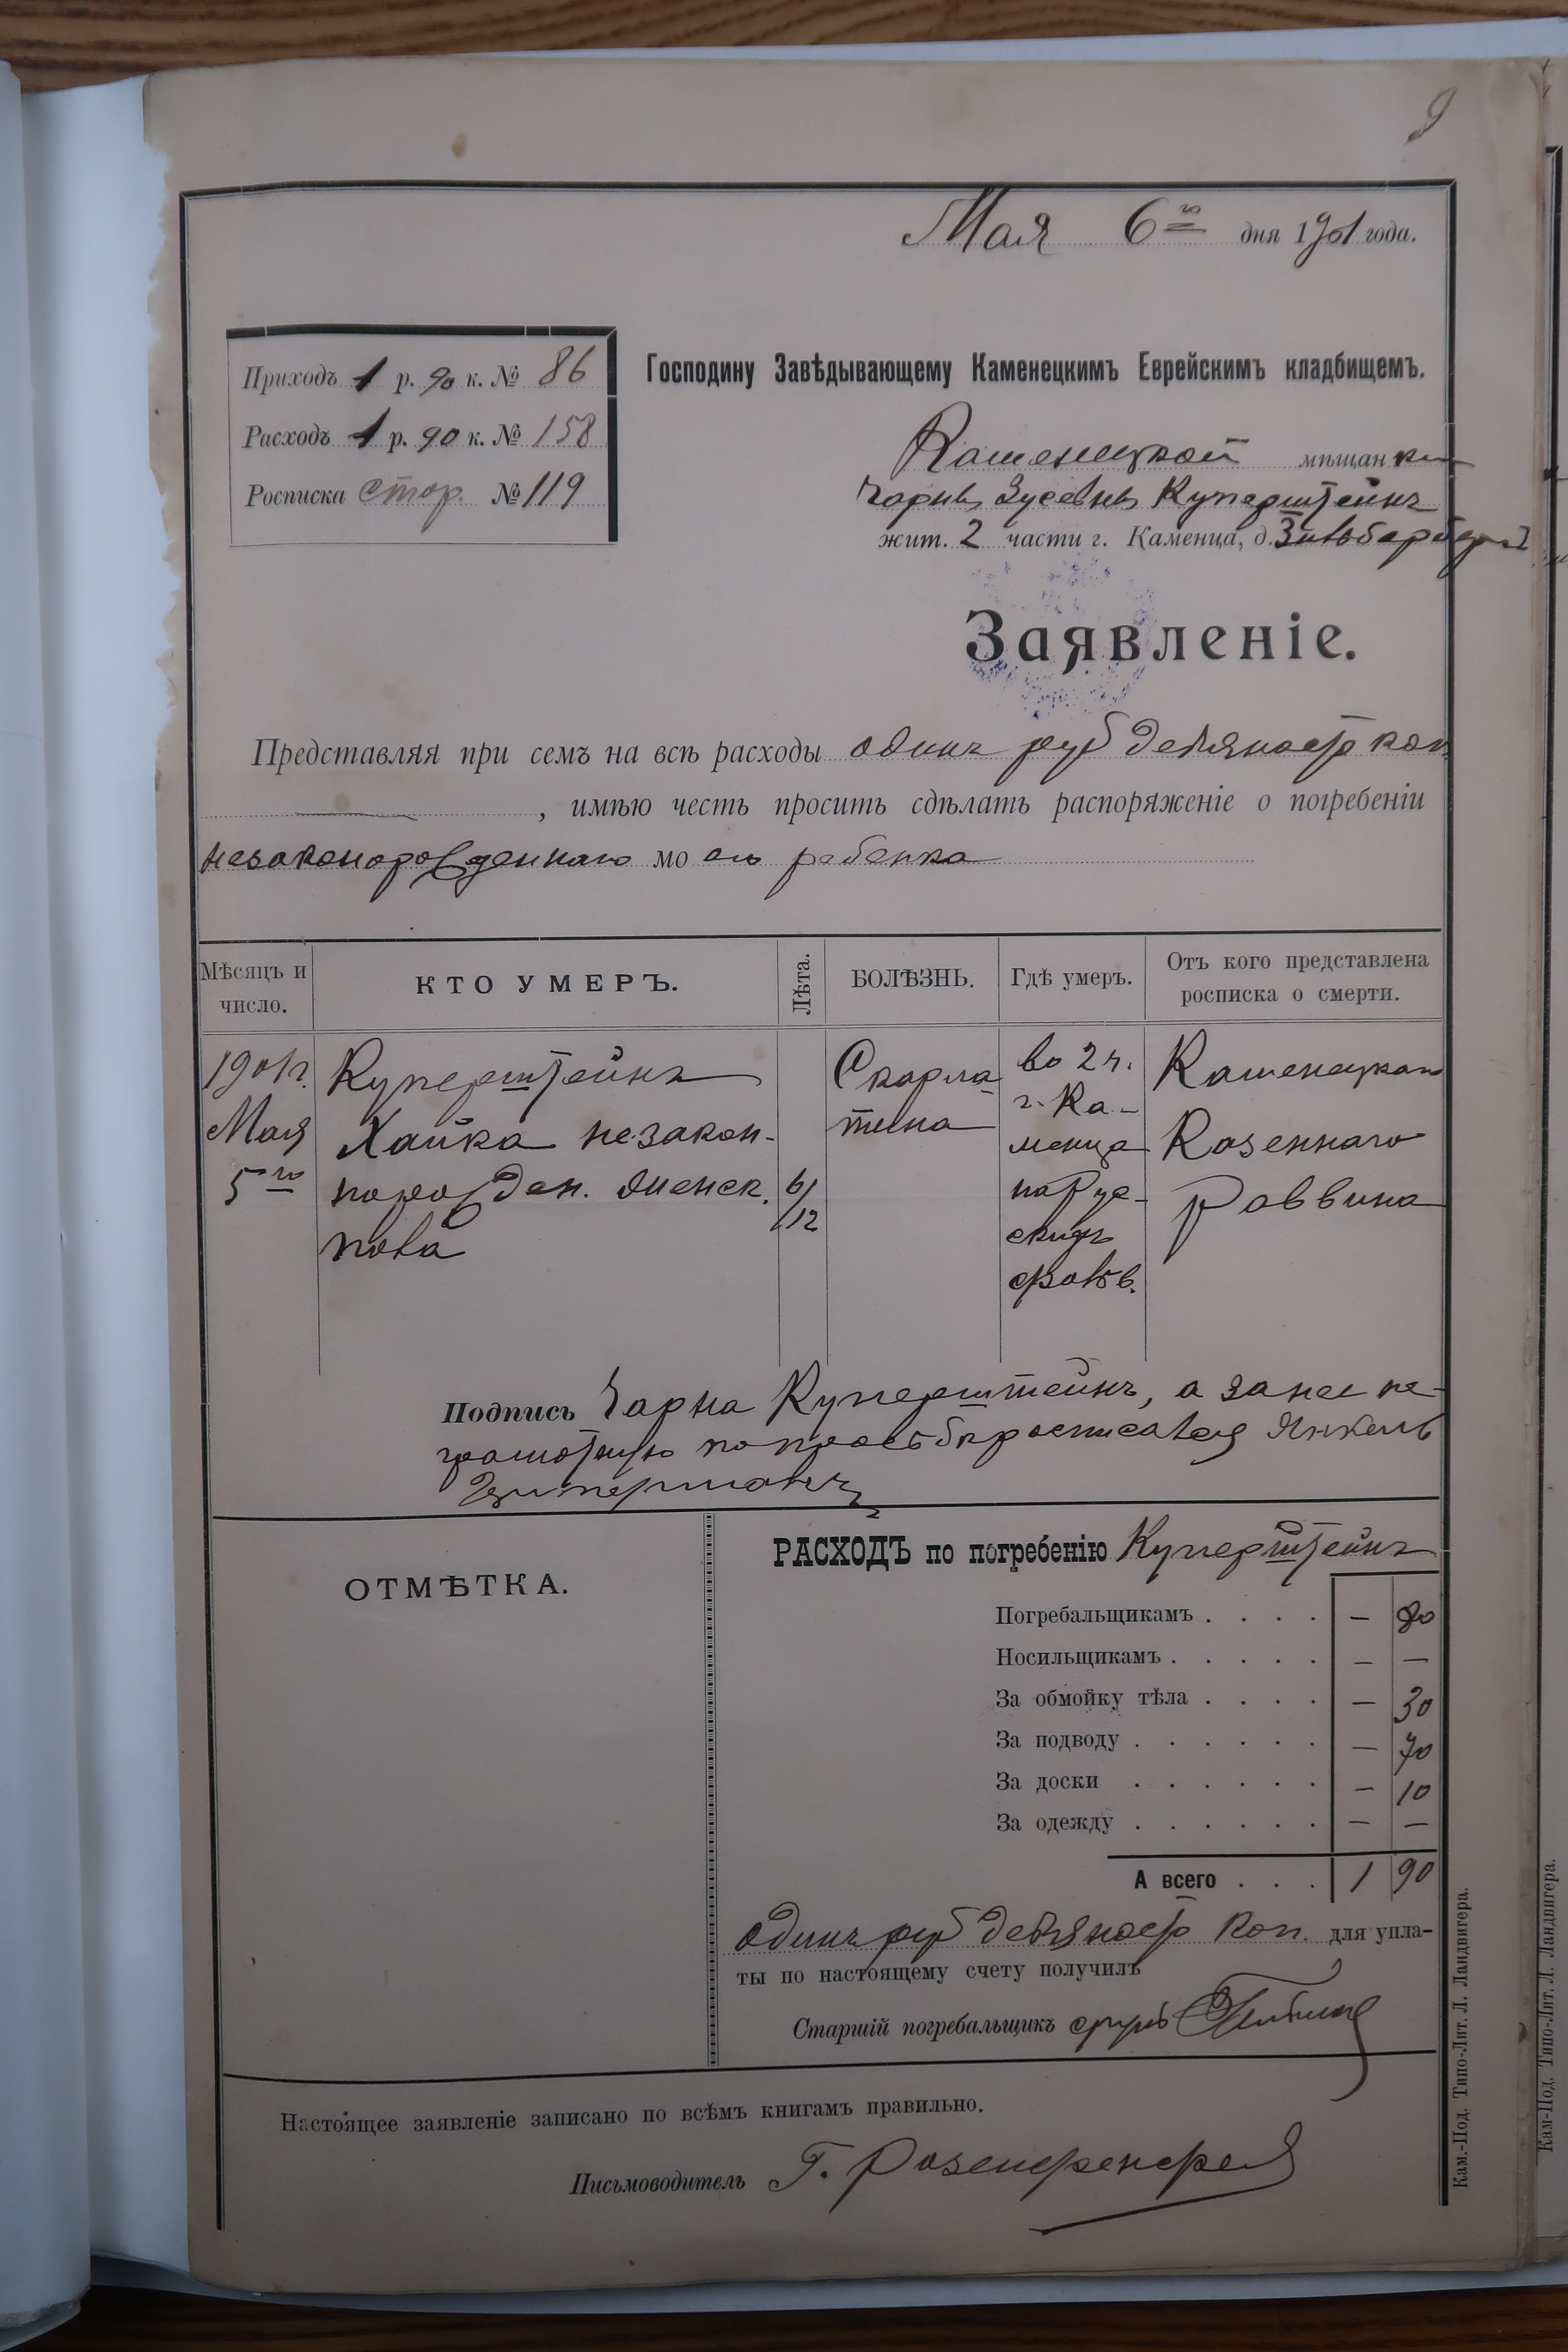 9
Мая 6го дня 1901 года.
Приходъ 1 р. 90 к. № 86
Расходъ 1 р. 90 к. № 158
Росписка стор. № 119
Господину Завѣдывающему Каменецкимъ Еврейскимъ кладбищемъ.
Каменецкой мѣщанки
Чарны Зусевны Куперштейнъ
жит. 2 части г. Каменца, д. Зильберберга
Заявленіе.
Представляя при семъ на всѣ расходы одинъ руб девяносто коп.
, имѣю честь просить сдѣлать распоряженіе о погребеніи
незаконорожденнаго моего ребенка
Мѣсяцъ и число.
КТО УМЕРЪ.
Лѣта.
БОЛѢЗНЬ.
Гдѣ умеръ.
Отъ кого представлена росписка о смерти.
1901 г.
Мая
5го
Куперштейнъ
Хайка незакон-
норожден. женск.
пола
6/12
Скарла-
тина
во 2 ч.
г. Ка-
менца
на Рус-
скихъ
фольв.
Каменецкаго
Казеннаго
Раввина
Подпись Чарна Куперштейнъ, а за нее не-
грамотную по просьбѣ росписался Янкель
Цитерманъ
ОТМѢТКА.
РАСХОДЪ по погребенію Куперштейнъ
Погребальщикамъ . . . . — 80
Носильщикамъ . . . . . — —
За обмойку тѣла . . . . — 30
За подводу . . . . . . — 70
За доски . . . . . . — 10
За одежду . . . . . . — —
А всего . . . 1 90
одинъ руб девяносто коп. для упла-
ты по настоящему счету получилъ
Старшій погребальщикъ
Настоящее заявленіе записано по всѣмъ книгамъ правильно.
Письмоводитель Г. Розенфенфелд
Кам.-Под. Типо-Лит. Л. Ландвигера.
Кам-Под. Типо-Лит. Л. Ландвигера.